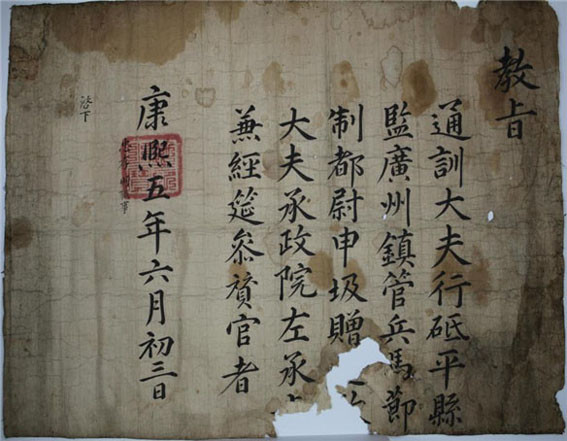 教旨
通訓大夫行砥平縣
監廣州鎮管兵馬節
制都尉申圾贈
大夫承政院左承
兼經筵叅賛官者
康熙五年六月初三日
啓下